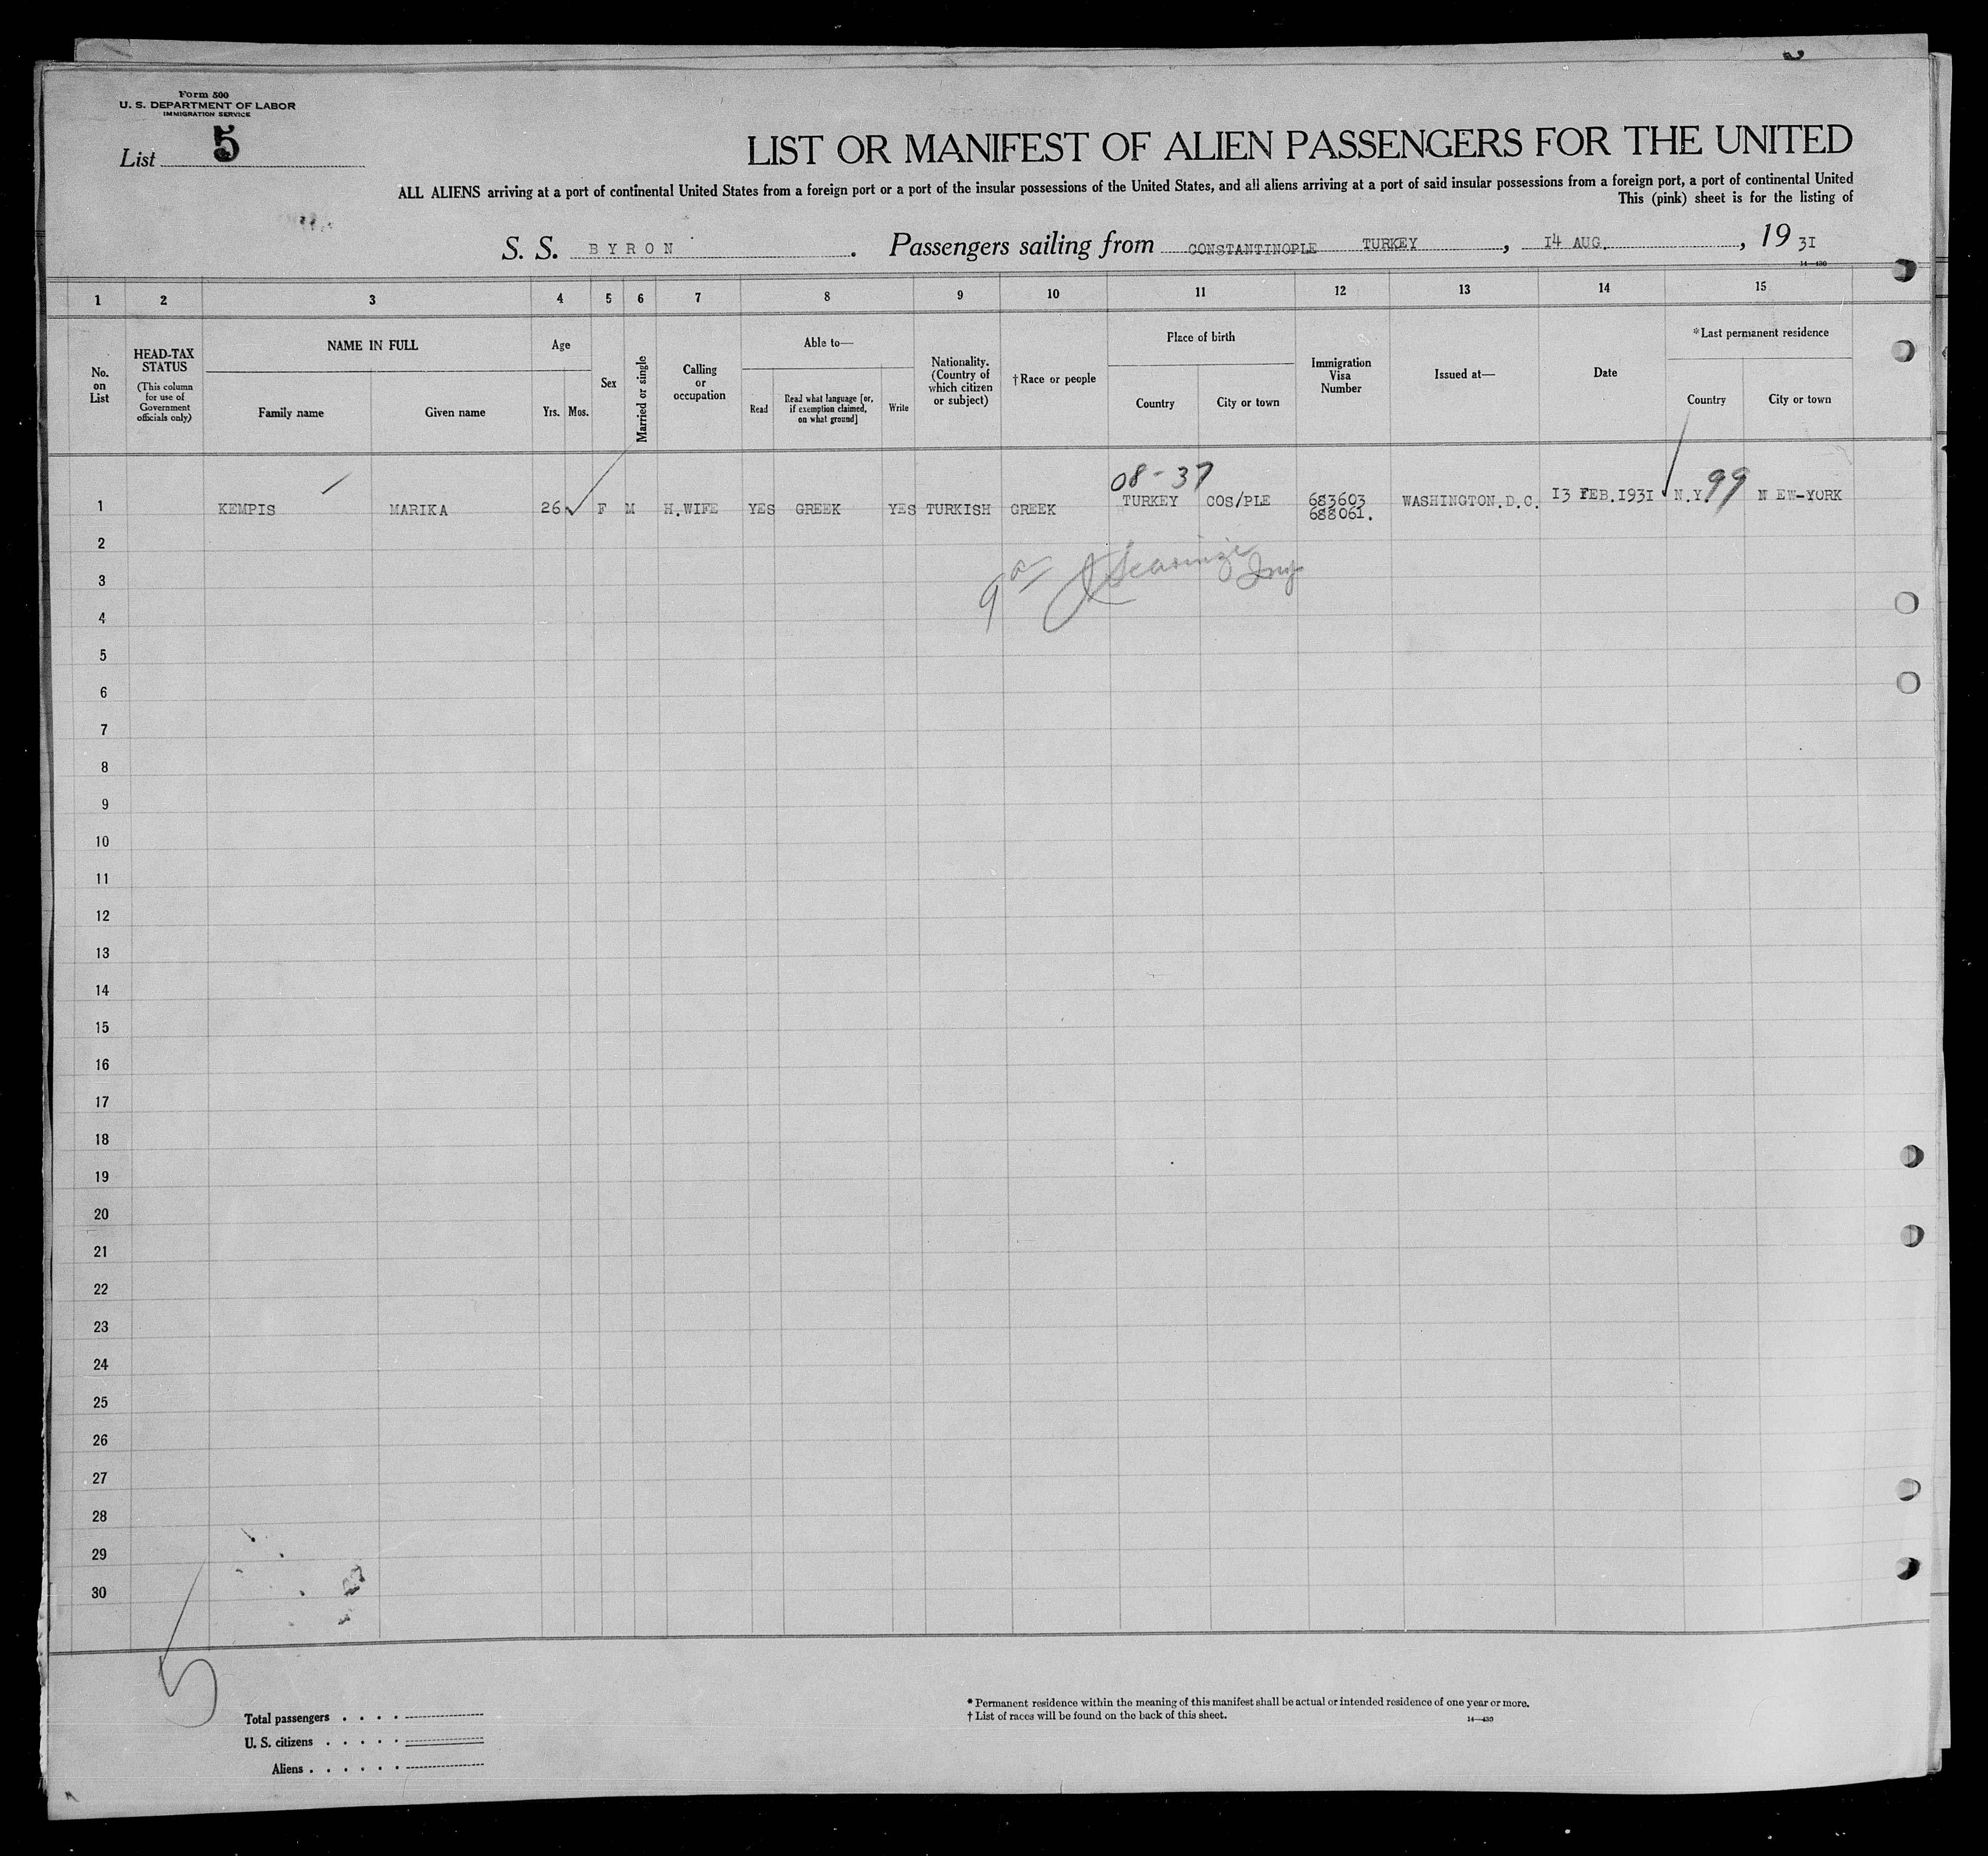 Form 500
U. S. DEPARTMENT OF LABOR
IMMIGRATION SERVICE
List 5
LIST OR MANIFEST OF ALIEN PASSENGERS FOR THE UNITED
ALL ALIENS arriving at a port of continental United States from a foreign port or a port of the insular possessions of the United States, and all aliens arriving at a port of said insular possessions from a foreign port, a port of continental United
This (pink) sheet is for the listing of
S. S. BYRON. Passengers sailing from CONSTANTINOPLE TURKEY, 14 AUG., 19 31
14—430
1 2 3 4 5 6 7 8 9 10 11 12 13 14 15
No. on List
HEAD-TAX STATUS
(This column for use of Government officials only)
NAME IN FULL
Family name Given name
Age
Yrs. Mos.
Sex
Married or single
Calling or occupation
Able to—
Read
Read what language [or, if exemption claimed, on what ground]
Write
Nationality. (Country of which citizen or subject)
†Race or people
Place of birth
Country City or town
Immigration Visa Number
Issued at—
Date
*Last permanent residence
Country City or town
08-37 99
1 KEMPIS MARIKA 26 F M H.WIFE YES GREEK YES TURKISH GREEK TURKEY COS/PLE 683603 WASHINGTON.D.C. 13 FEB.1931 N.Y. N EW-YORK
688061.
2
3
4
5
6
7
8
9
10
11
12
13
14
15
16
17
18
19
20
21
22
23
24
25
26
27
28
29
30
5
Total passengers . . . .
U. S. citizens . . . . .
Aliens . . . . . .
* Permanent residence within the meaning of this manifest shall be actual or intended residence of one year or more.
† List of races will be found on the back of this sheet.
14—430